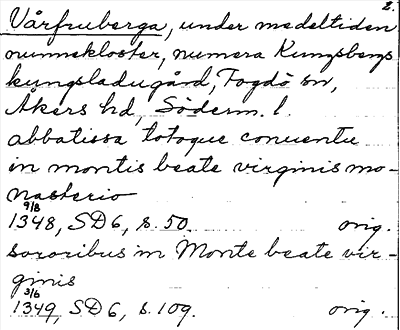 2.
Vårfruberga, under medeltiden
nunnekloster, numera Kungsbergs
kungsladugård, Fogdö sn,
Åkers hd, Söderm. l.
abbatissa totoque conuentu
in montis beate virginis mo-
nasterio
9/8
1348, SD 6, s. 50. orig.
sororibus in Monte beate vir-
ginis
3/6
1349, SD 6, s. 109. orig.